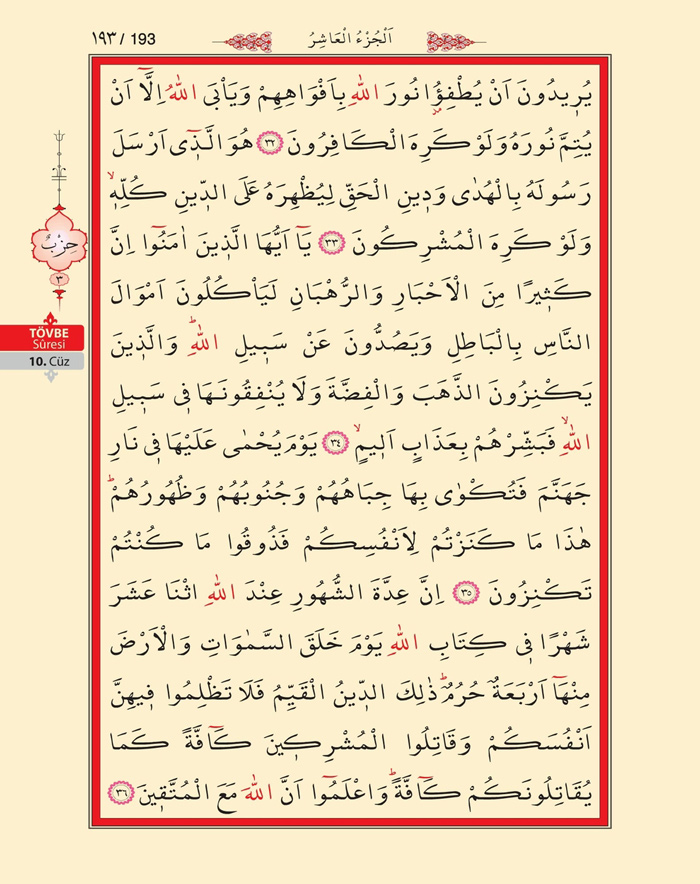 ١٩٣ / 193
اَلْجُزْءُ الْعَاشِرُ
يُرِيدُونَ اَنْ يُطْفِؤُا نُورَ اللّٰهِ بِاَفْوَاهِهِمْ وَيَأْبَى اللّٰهُ اِلَّٓا اَنْ
يُتِمَّ نُورَهُ وَلَوْ كَرِهَ الْكَافِرُونَ ٣٢ هُوَ الَّذٓي اَرْسَلَ
رَسُولَهُ بِالْهُدٰى وَدِينِ الْحَقِّ لِيُظْهِرَهُ عَلَى الدِّينِ كُلِّهٖۙ
وَلَوْ كَرِهَ الْمُشْرِكُونَ ٣٣ يَٓا اَيُّهَا الَّذِينَ اٰمَنُٓوا اِنَّ
كَثِيرًا مِنَ الْاَحْبَارِ وَالرُّهْبَانِ لَيَأْكُلُونَ اَمْوَالَ
النَّاسِ بِالْبَاطِلِ وَيَصُدُّونَ عَنْ سَبِيلِ اللّٰهِۜ وَالَّذِينَ
يَكْنِزُونَ الذَّهَبَ وَالْفِضَّةَ وَلَا يُنْفِقُونَهَا فِي سَبِيلِ
اللّٰهِۙ فَبَشِّرْهُمْ بِعَذَابٍ اَلِيمٍۙ ٣٤ يَوْمَ يُحْمٰى عَلَيْهَا فِي نَارِ
جَهَنَّمَ فَتُكْوٰى بِهَا جِبَاهُهُمْ وَجُنُوبُهُمْ وَظُهُورُهُمْۜ
هٰذَا مَا كَنَزْتُمْ لِاَنْفُسِكُمْ فَذُوقُوا مَا كُنْتُمْ
تَكْنِزُونَ ٣٥ اِنَّ عِدَّةَ الشُّهُورِ عِنْدَ اللّٰهِ اثْنَا عَشَرَ
شَهْرًا فِي كِتَابِ اللّٰهِ يَوْمَ خَلَقَ السَّمٰوَاتِ وَالْاَرْضَ
مِنْهَٓا اَرْبَعَةٌ حُرُمٌۜ ذٰلِكَ الدِّينُ الْقَيِّمُ فَلَا تَظْلِمُوا فِيهِنَّ
اَنْفُسَكُمْ وَقَاتِلُوا الْمُشْرِكِينَ كَٓافَّةً كَمَا
يُقَاتِلُونَكُمْ كَٓافَّةًۜ وَاعْلَمُٓوا اَنَّ اللّٰهَ مَعَ الْمُتَّقِينَ ٣٦
حِزْبٌ
٣
TÖVBE
Sûresi
10. Cüz